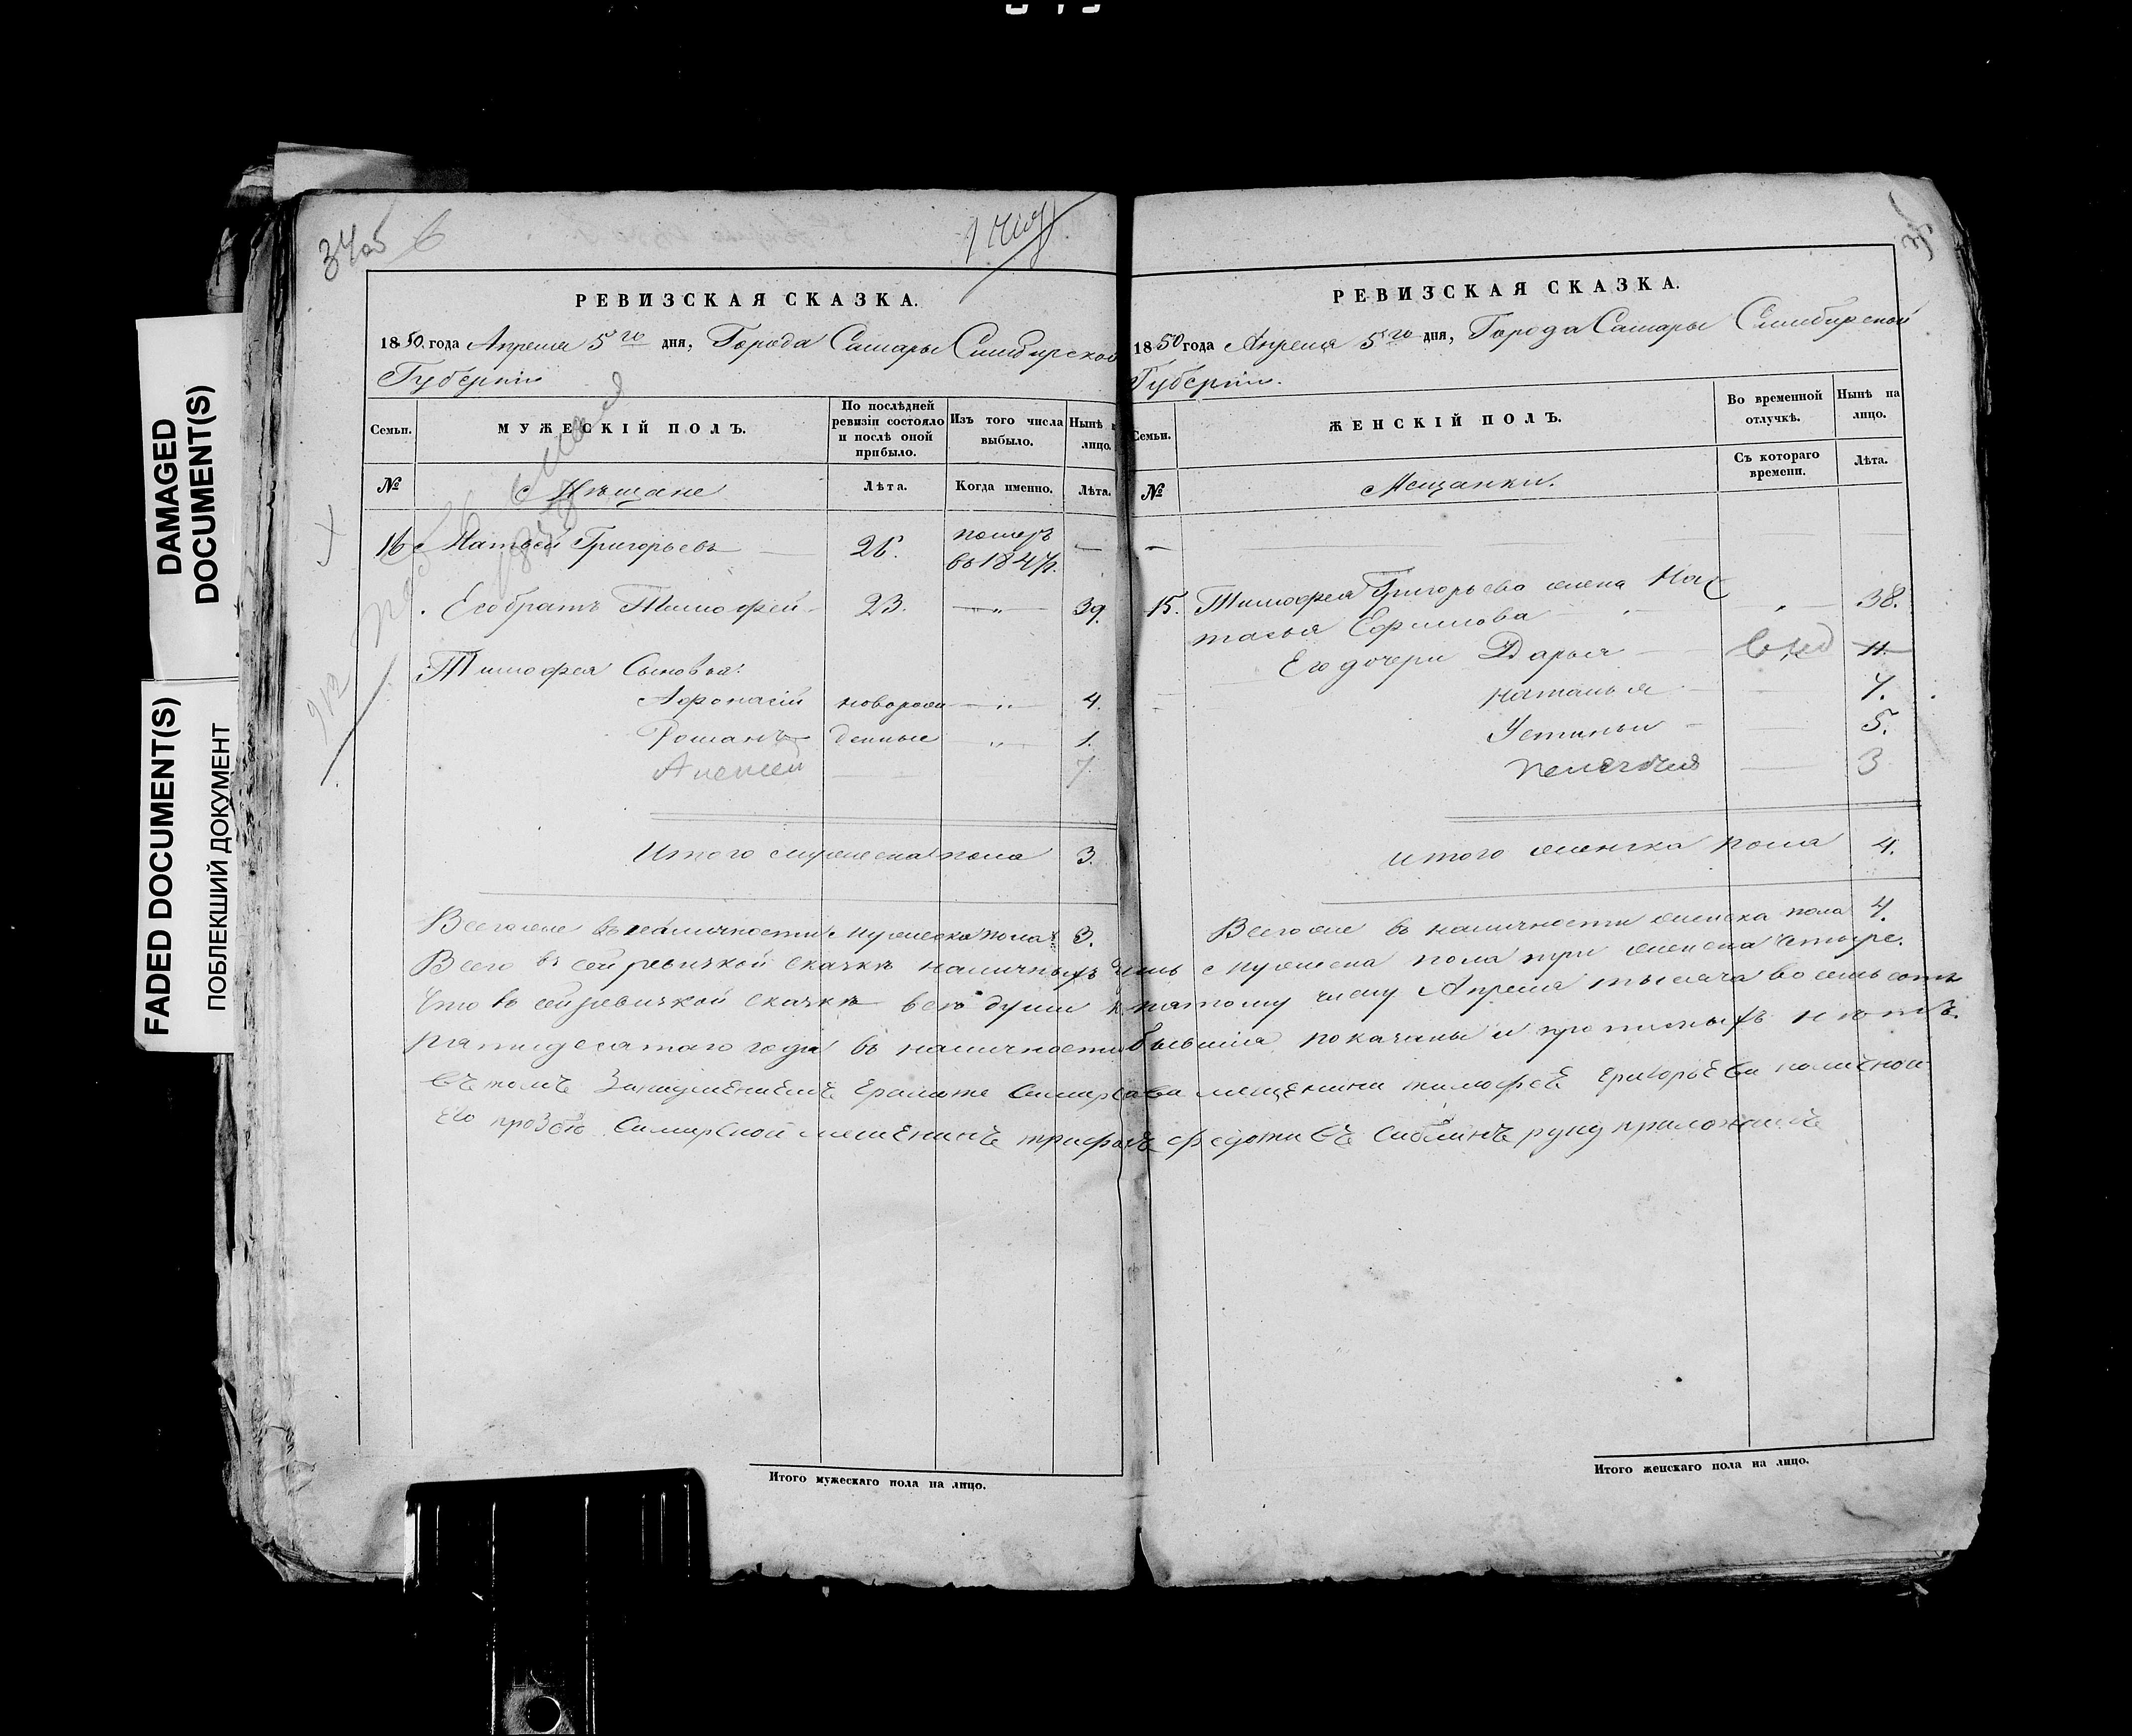 DAMAGED
DOCUMENT(S)
FADED DOCUMENT(S)
ПОБЛЕКШИЙ ДОКУМЕНТ
34об
РЕВИЗСКАЯ СКАЗКА.
1850 года Апреля 5го дня, Города Самары Симбирской
Губернии
Семьи.
МУЖЕСКІЙ ПОЛЪ.
По послѣдней
ревизіи состояло
и послѣ оной
прибыло.
Изъ того числа
выбыло.
Нынѣ
лицо.
№
Мѣщане
Лѣта.
Когда именно.
Лѣта.
Матвей Григорьевъ
помер
в 1847г.
Его братъ Тимофей 23. 39.
Тимофея Сыновья:
Афонасій новорож 4.
Романъ денные 1.
Алексей 7
Итого мужеска пола 3.
Всегоже въ наличности мужеска пола 3.
Итого мужескаго пола на лицо.
РЕВИЗСКАЯ СКАЗКА.
1850 года Апреля 5го дня, Города Самары Симбирской
Губернии.
Семьи.
ЖЕНСКІЙ ПОЛЪ.
Во временной
отлучкѣ.
Нынѣ на
лицо.
№
Мещанки.
Съ котораго
времени.
Лѣта.
15. Тимофея Григорьева жена Нас
тасья Ефимова 38.
Его дочери Дарья 11.
наталья 7.
Устинья 5.
Пелагея 3
итого женска пола 4.
Всегоже въ наличности женска пола 4.
Всего въ сей ревизкой сказкѣ наличныхъ мужеска пола три женска четыре.
Что въ сей ревизкой сказкѣ все души к пятому числу Апреля тысяча восемьсотъ
пятидесятаго года въ наличности бывшия показаны и прописныхъ нетъ.
Въ томъ мещанина тимофея григорьева
его прозбою Самарской мещенинъ трифонъ федотивъ руку приложилъ
Итого женскаго пола на лицо.